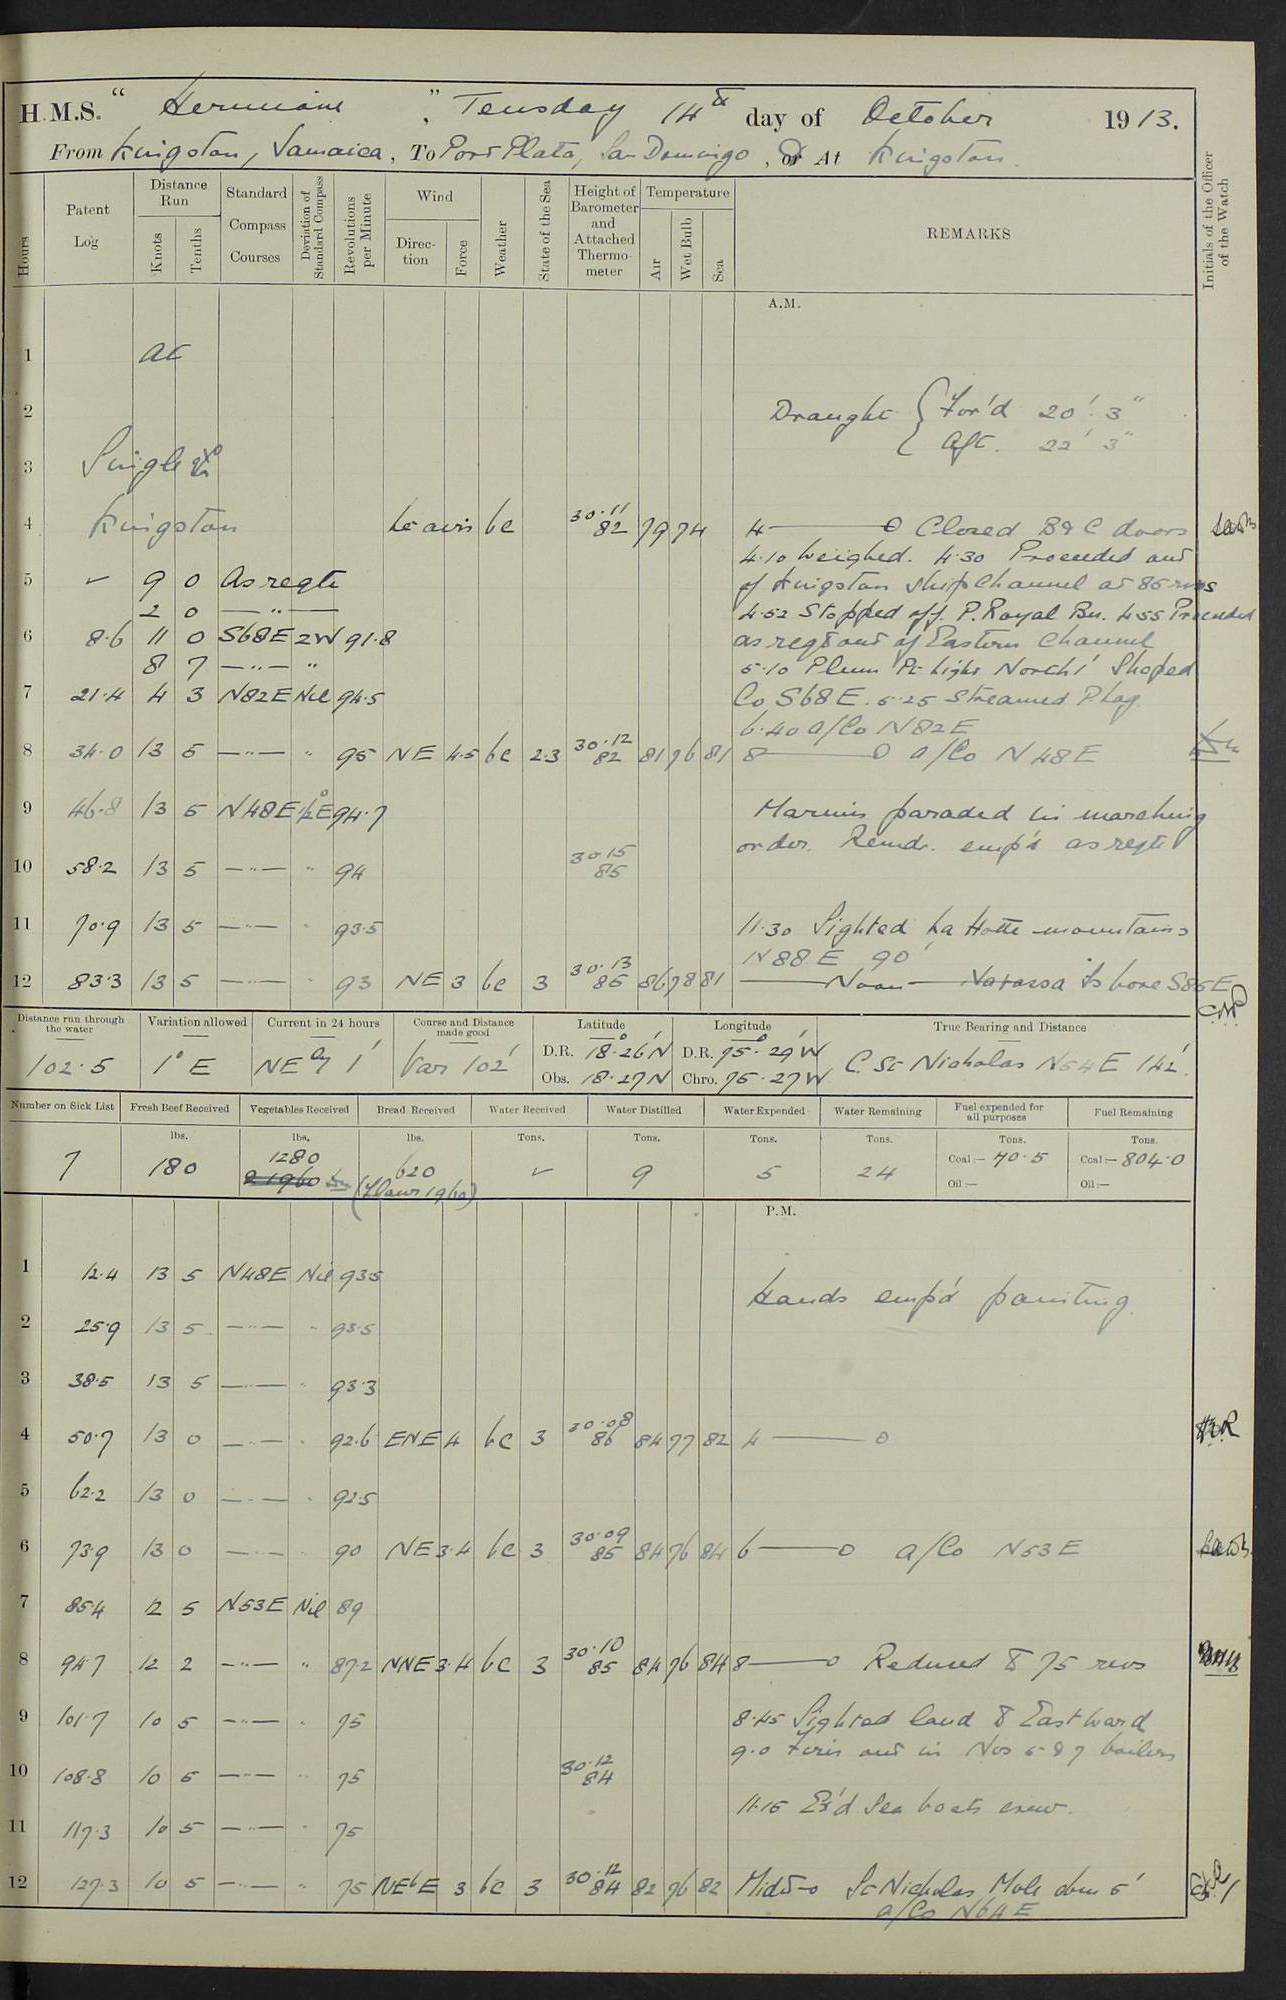 H.M.S. “ Hermione ”, Teusday 14th day of October 1913.
From Kingston, Jamaica, To Port Plata, San Domingo, or At Kingston.
Hours
Patent Log
Distance Run
Knots
Tenths
Standard Compass Courses
Deviation of Standard Compass
Revolutions per Minute
Wind
Direction
Force
Weather
State of the Sea
Height of Barometer and Attached Thermometer
Temperature
Air
Wet Bulb
Sea
REMARKS
Initials of the Officer of the Watch
A.M.
1 At
2 Draught { For'd 20' 3"
Aft. 22' 3"
3 Single
4 Kingston Lt airs bc 30.11 82 79 74 4 — 0 Closed B & C doors
4.10 Weighed. 4.30 Proceeded out
5 ✓ 9 0 As reqte of Kingston Ship Channel at 86 revs
2 0 — " — 4.52 Stopped off P. Royal Bn. 4.55 Proceeded
6 8.6 11 0 S68E 2W 91.8 as reqd out of Eastern Channel
8 7 — " — " 5.10 Plum Pt light North 1' Shaped
7 21.4 4 3 N82E Nil 94.5 Co S68E. 5.25 Streamed P. Log
6.40 a/Co N82E
8 34.0 13 5 — " — " 95 NE 4.5 bc 2.3 30.12 82 81 76 81 8 — 0 a/Co N48E
9 46.8 13 5 N48E ½°E 94.7 Marines paraded in marching
order. Remdr. emp'd as reqte
10 58.2 13 5 — " — " 94 30.15 85
11 70.9 13 5 — " — " 93.5 11.30 Sighted La Hotte mountains
N88E 90'
12 83.3 13 5 — " — " 93 NE 3 bc 3 30.13 85 86 78 81 — Noon — Navassa Is bore S86E
Distance run through the water
Variation allowed
Current in 24 hours
Course and Distance made good
Latitude
Longitude
True Bearing and Distance
102.5 1° E NEly 1' Var 102' D.R. 18°.26'N D.R. 75°.29'W C. St Nicholas N54E 142'
Obs. 18.27N Chro. 75.27W
Number on Sick List
Fresh Beef Received
Vegetables Received
Bread Received
Water Received
Water Distilled
Water Expended
Water Remaining
Fuel expended for all purposes
Fuel Remaining
lbs. lbs. lbs. Tons. Tons. Tons. Tons. Tons. Tons.
7 180 1280 620 ✓ 9 5 24 Coal:— 70.5 Coal:— 804.0
Oil:— Oil:—
P.M.
1 12.4 13 5 N48E Nil 93.5
Hands emp'd painting.
2 25.9 13 5 — " — " 93.5
3 38.5 13 5 — " — " 93.3
4 50.7 13 0 — " — " 92.6 ENE 4 bc 3 30.08 86 84 77 82 4 — 0
5 62.2 13 0 — " — " 92.5
6 73.9 13 0 — " — " 90 NE 3.4 bc 3 30.09 85 84 76 84 6 — 0 a/Co N53E
7 85.4 12 5 N53E Nil 89
8 94.7 12 2 — " — " 87.2 NNE 3.4 bc 3 30.10 85 84 76 84 8 — 0 Reduced to 75 revs
9 101.7 10 5 — " — " 75 8.45 Sighted land to Eastward
9.0 Fires out in Nos 5 & 7 boilers
10 108.8 10 5 — " — " 75 30.12 84
11.15 Ex'd Sea boats crew.
11 117.3 10 5 — " — " 75
12 127.3 10 5 — " — " 75 NEbE 3 bc 3 30.12 84 82 76 82 Midt—0 St Nicholas Mole abm 5'
a/Co N64E